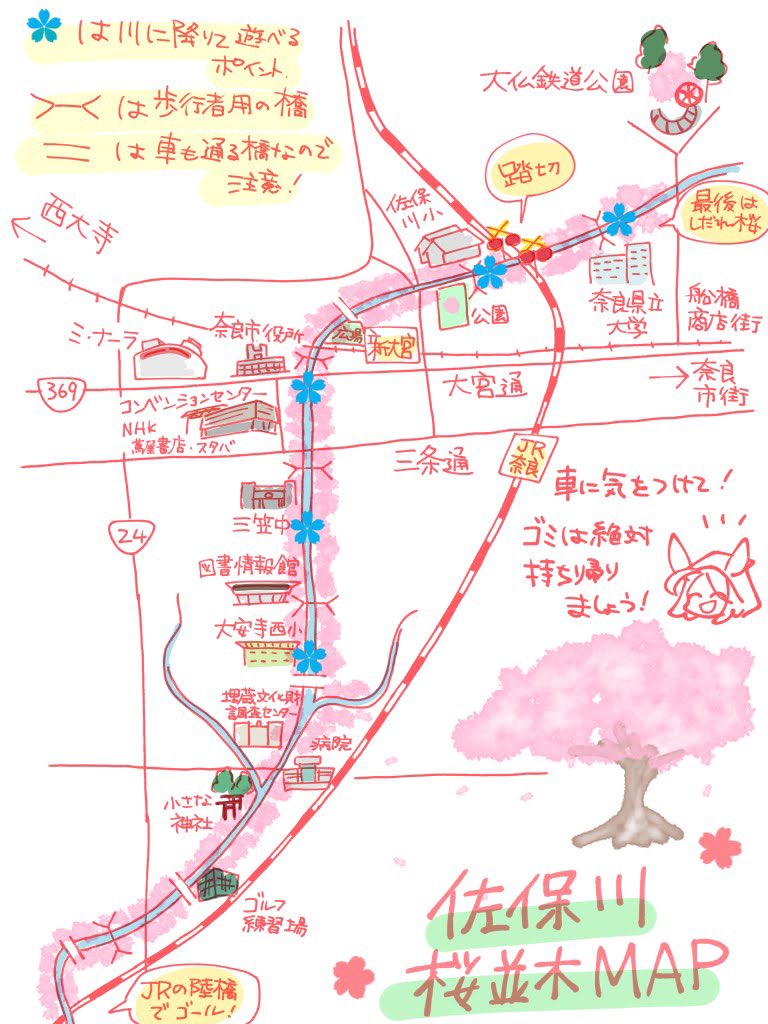 は川に降りて遊べる
ポイント.
は歩行者用の橋
は車も通る橋なので
注意!
大仏鉄道公園
踏切
西大寺
佐保
川小
最後は
しだれ桜
公園
奈良県立
大学
船橋
商店街
ミ・ナーラ
奈良市役所
広場
新大宮
369
大宮通
奈良
市街
コンベンションセンター
NHK
蔦屋書店・スタバ
三条通
JR
奈良
車に気をつけて!
24
三笠中
ゴミは絶対
持ち帰り
ましょう!
図書情報館
大安寺西小
埋蔵文化財
調査センター
病院
小さな
神社
ゴルフ
練習場
JRの陸橋
でゴール!
佐保川
桜並木MAP